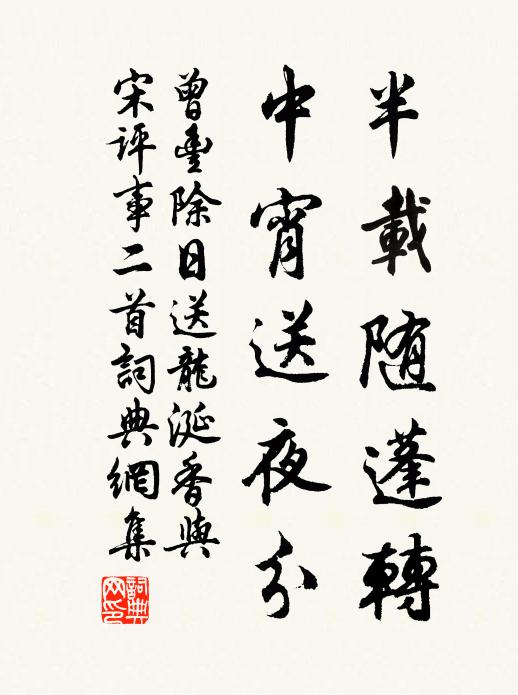 半載随蓬轉
中宵送夜分
曾豊除日送龍涎香與
宋評事二首詞典網集
詞典
网印